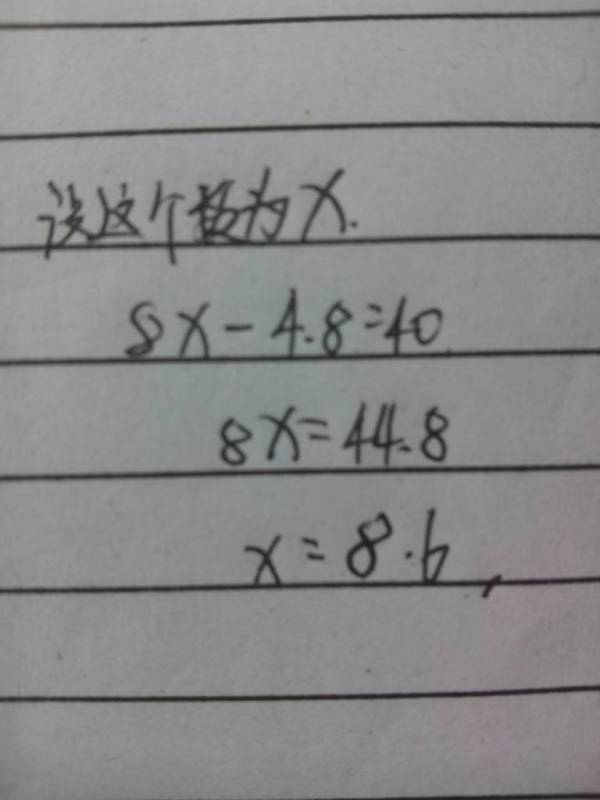 设这个数为x.
8x-4.8=40
8x=44.8
x=8.6